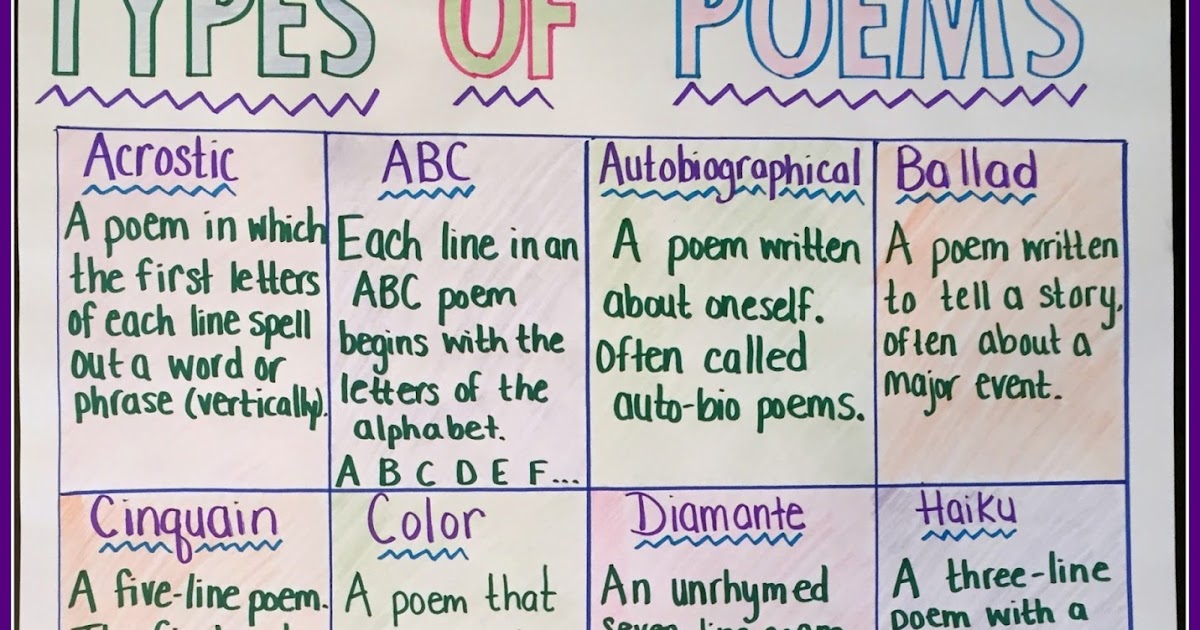 TYPES OF POEMS
Acrostic
A poem in which
the first letters
of each line spell
out a word or
phrase (vertically).
ABC
Each line in an
ABC poem
begins with the
letters of the
alphabet.
A B C D E F...
Autobiographical
A poem written
about oneself.
Often called
auto-bio poems.
Ballad
A poem written
to tell a story,
often about a
major event.
Cinquain
A five-line poem.
Color
A poem that
Diamante
An unrhymed
Haiku
A three-line
poem with a